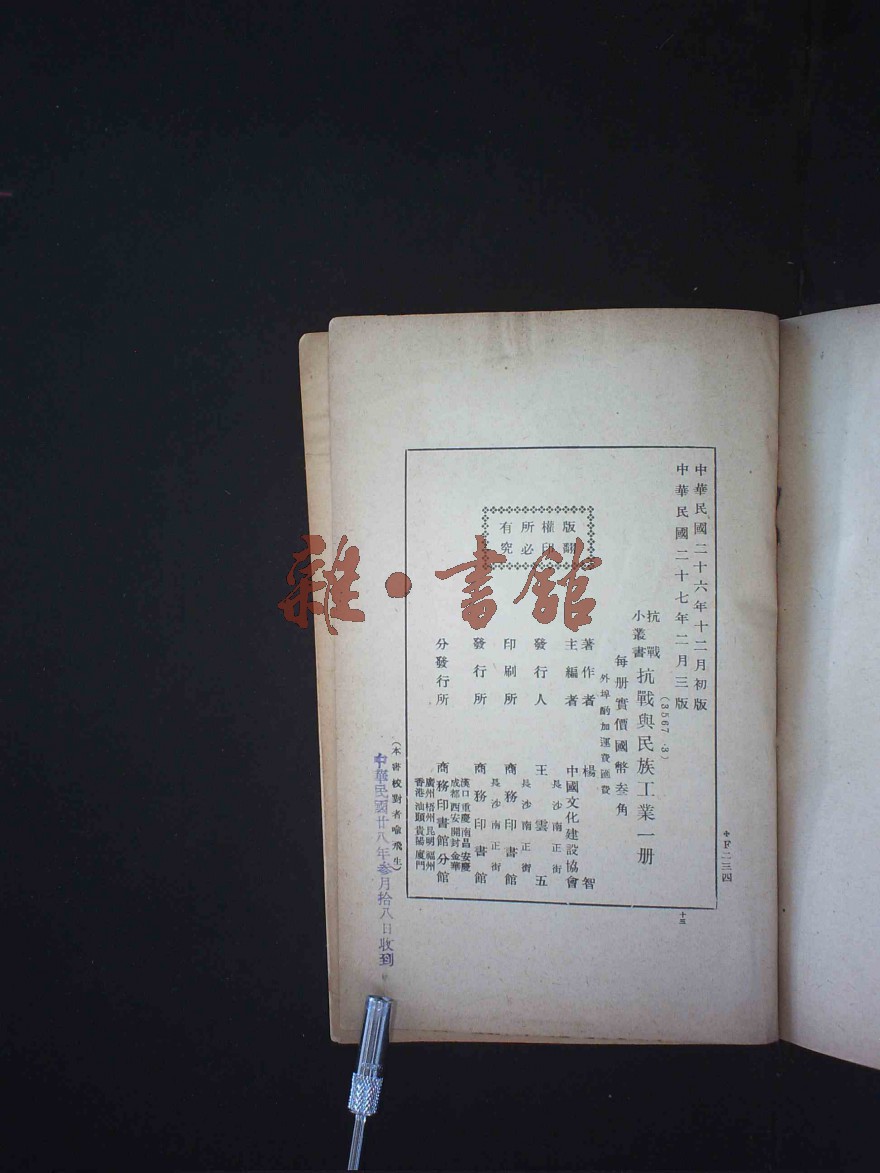 中華民國二十六年十二月初版
中華民國二十七年二月三版
(3567·3)
抗戰
小叢書
抗戰與民族工業一册
每册實價國幣叁角
外埠酌加運費匯費
著作者 楊智
主編者 中國文化建設協會
發行人 王雲五
長沙南正街
印刷所 商務印書館
長沙南正街
發行所 商務印書館
分發行所 商務印書館分館
漢口重慶南昌安慶
成都西安開封金華
廣州梧州昆明福州
香港汕頭貴陽廈門
版權所有
翻印必究
(本書校對者喻飛生)
中華民國廿八年叁月拾八日收到
F二三四
十三
雜·書館